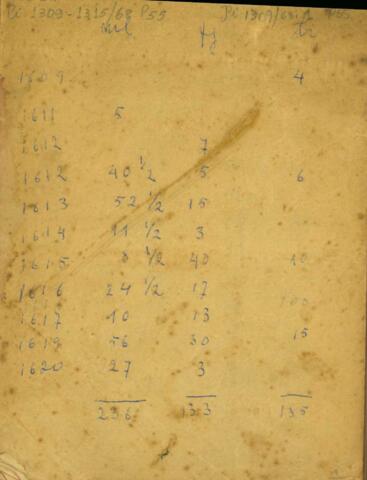 Pi 1309-1315/68 P55 Pi 1319/68
1609 4
1611 5
1612 7
1612 40 1/2 5 6
1613 52 1/2 15
1614 11 1/2 3
1615 1/2 40 10
1616 24 1/2 17 100
1617 10 13
1619 56 30 15
1620 27 3
236 133 135